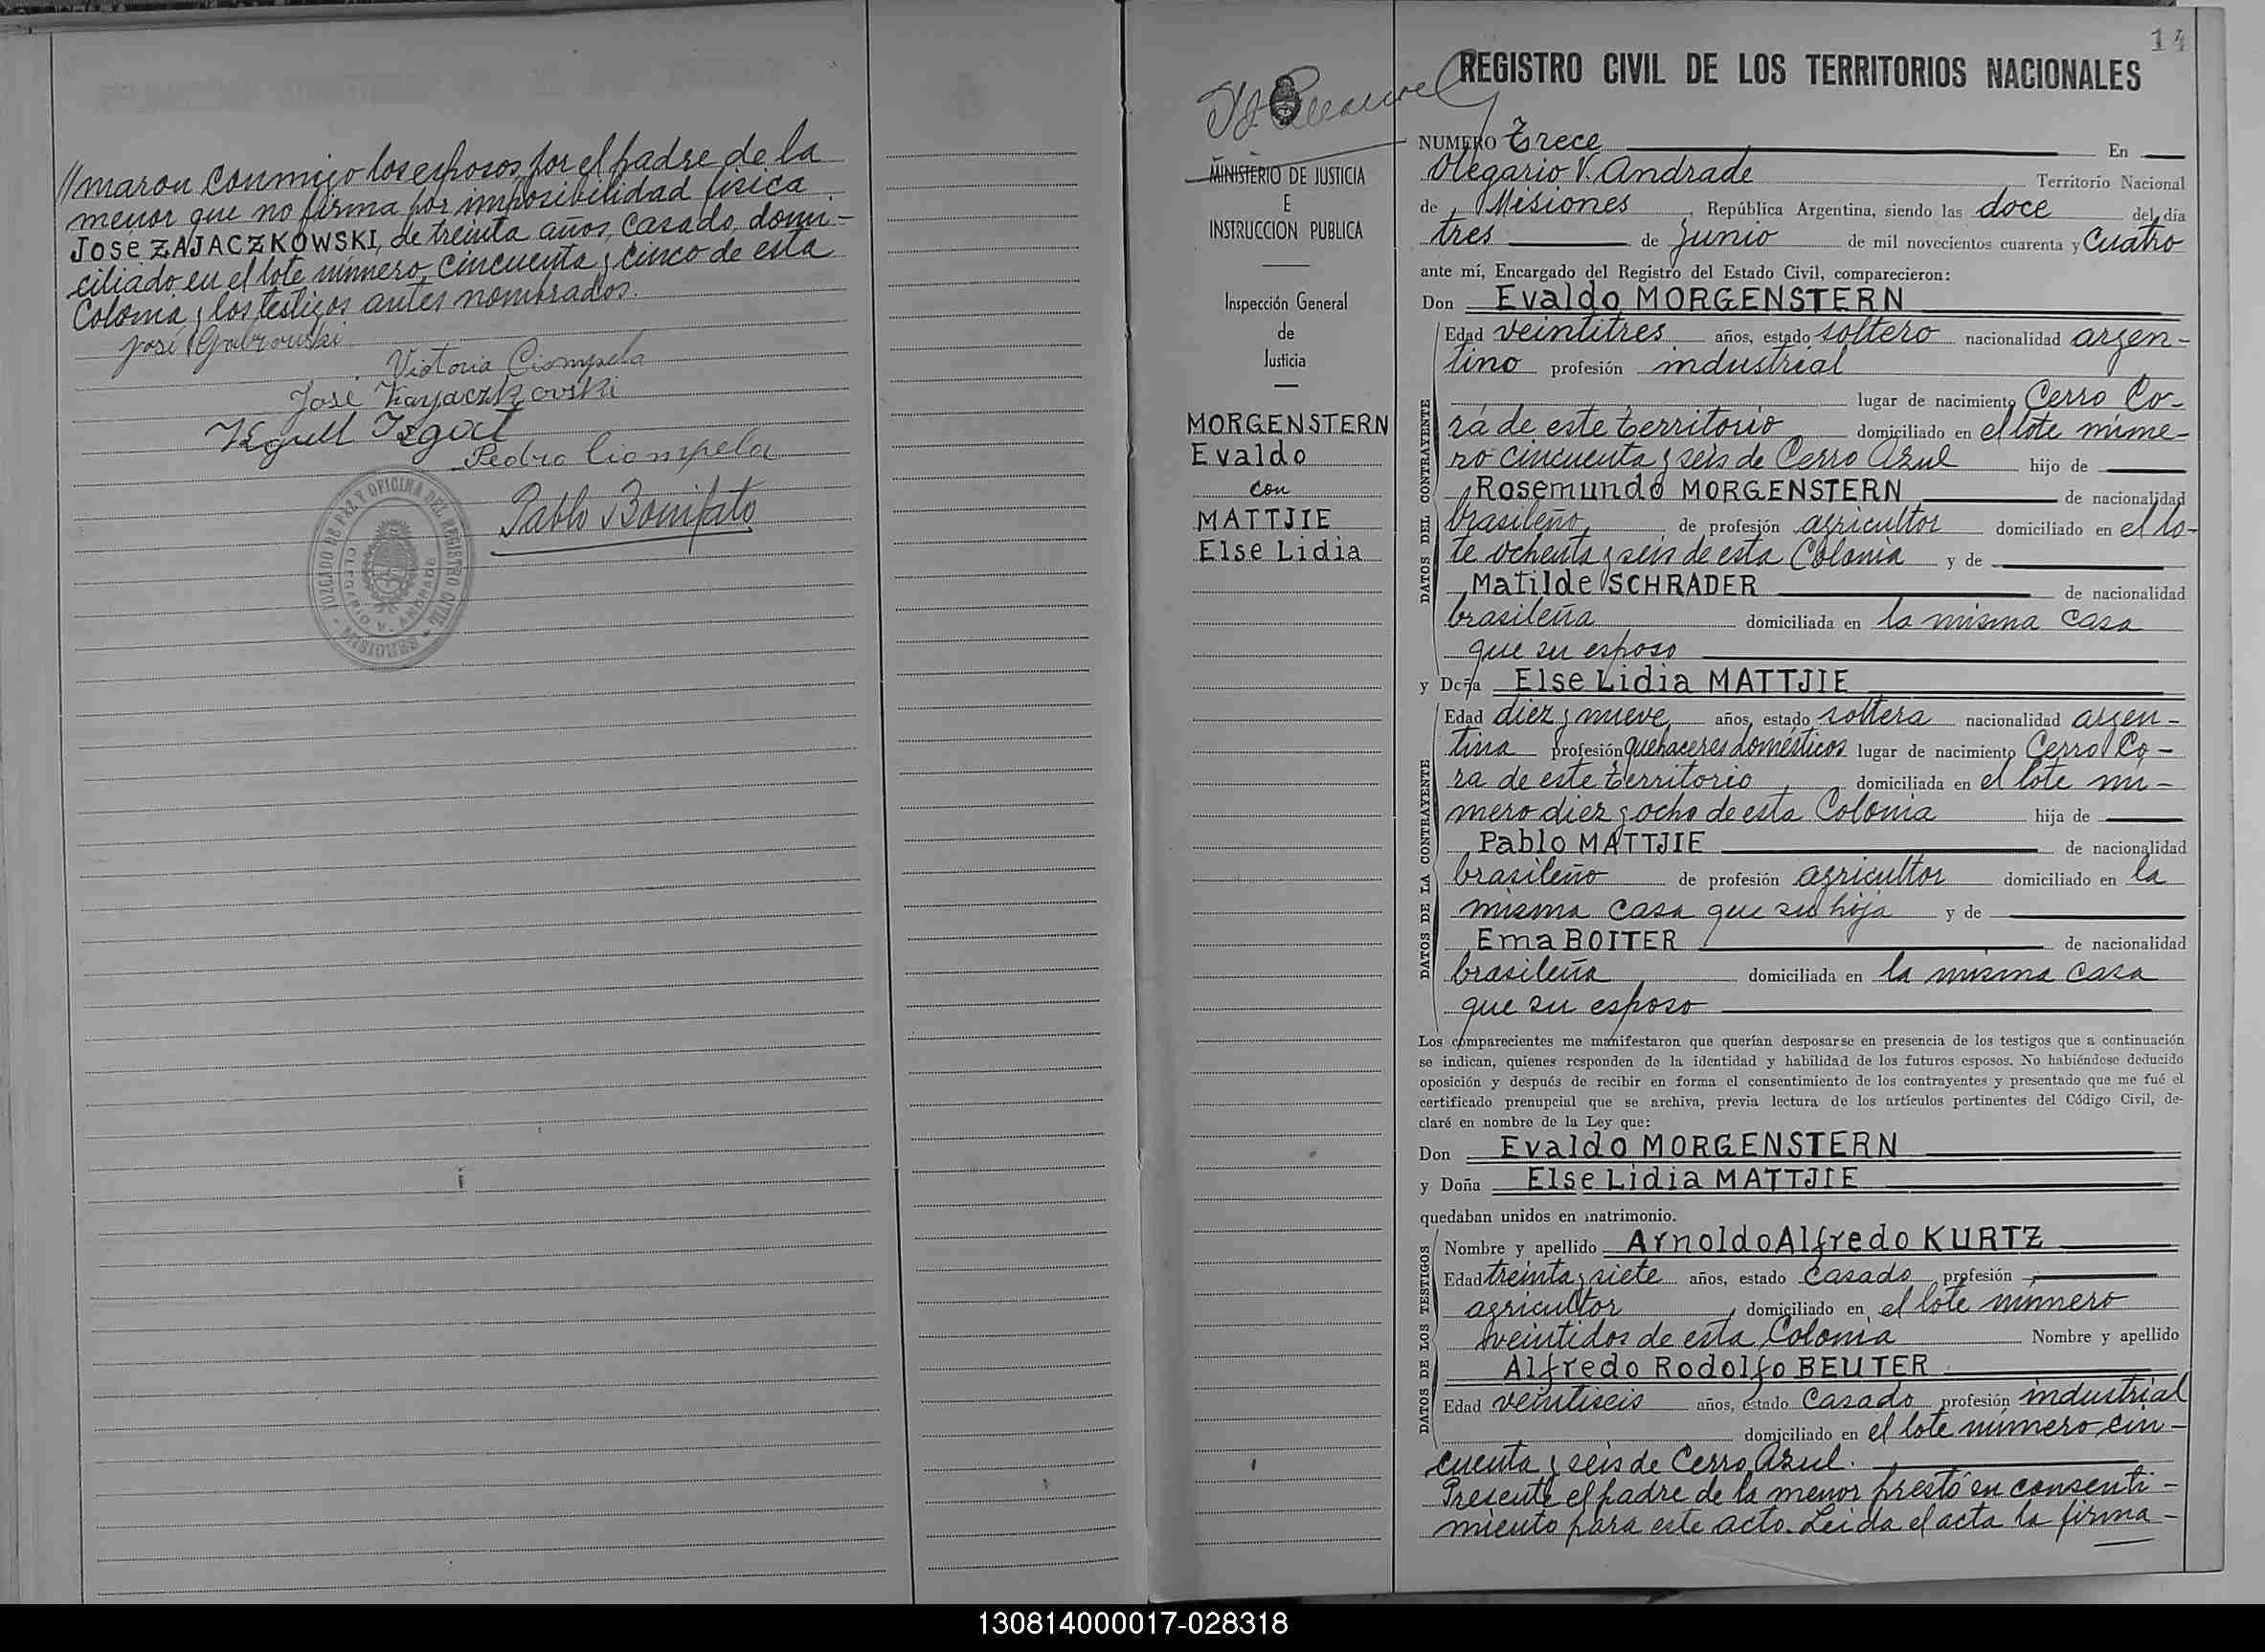 //maron conmigo los esposos, por el padre de la
menor que no firma por imposibilidad física
José ZAJACZKOWSKI, de treinta años, casado, domi-
ciliado en el lote número cincuenta y cinco de esta
Colonia y los testigos antes nombrados.
José Gabrouski
Victoria Ciompela
José Zayaczkovski
Pedro Ciompela
Pablo Bonifato
JUZGADO DE PAZ Y OFICINA DEL REGISTRO CIVIL
OLEGARIO V. ANDRADE
- MISIONES -
MINISTERIO DE JUSTICIA
E
INSTRUCCION PUBLICA
Inspección General
de
Justicia
MORGENSTERN
Evaldo
con
MATTJIE
Else Lidia
14
REGISTRO CIVIL DE LOS TERRITORIOS NACIONALES
NUMERO Trece En
Olegario V. Andrade Territorio Nacional
de Misiones, República Argentina, siendo las doce del día
tres de Junio de mil novecientos cuarenta y Cuatro
ante mí, Encargado del Registro del Estado Civil, comparecieron:
Don Evaldo MORGENSTERN
DATOS DEL CONTRAYENTE
Edad veintitres años, estado soltero nacionalidad argen-
tino profesión industrial
lugar de nacimiento Cerro Co-
rá de este territorio domiciliado en el lote núme-
ro cincuenta y seis de Cerro Azul hijo de
Rosemundo MORGENSTERN de nacionalidad
brasileño, de profesión agricultor domiciliado en el lo-
te ochenta y seis de esta Colonia y de
Matilde SCHRADER de nacionalidad
brasileña domiciliada en la misma casa
que su esposo
y Doña Else Lidia MATTJIE
DATOS DE LA CONTRAYENTE
Edad diez y nueve años, estado soltera nacionalidad argen-
tina profesión quehaceres domésticos lugar de nacimiento Cerro Co-
rá de este territorio domiciliada en el lote nú-
mero diez y ocho de esta Colonia hija de
Pablo MATTJIE de nacionalidad
brasileño de profesión agricultor domiciliado en la
misma casa que su hija y de
Ema BOITER de nacionalidad
brasileña domiciliada en la misma casa
que su esposo
Los comparecientes me manifestaron que querían desposarse en presencia de los testigos que a continuación
se indican, quienes responden de la identidad y habilidad de los futuros esposos. No habiéndose deducido
oposición y después de recibir en forma el consentimiento de los contrayentes y presentado que me fué el
certificado prenupcial que se archiva, previa lectura de los artículos pertinentes del Código Civil, de-
claré en nombre de la Ley que:
Don Evaldo MORGENSTERN
y Doña Else Lidia MATTJIE
quedaban unidos en matrimonio.
DATOS DE LOS TESTIGOS
Nombre y apellido Arnoldo Alfredo KURTZ
Edad treinta y siete años, estado casado profesión
agricultor, domiciliado en el lote número
veintidos de esta Colonia Nombre y apellido
Alfredo Rodolfo BEUTER
Edad veintiseis años, estado casado profesión industrial
domiciliado en el lote número cin-
cuenta y seis de Cerro Azul.
Presente el padre de la menor prestó su consenti-
miento para este acto. Leida el acta la firma-
130814000017-028318